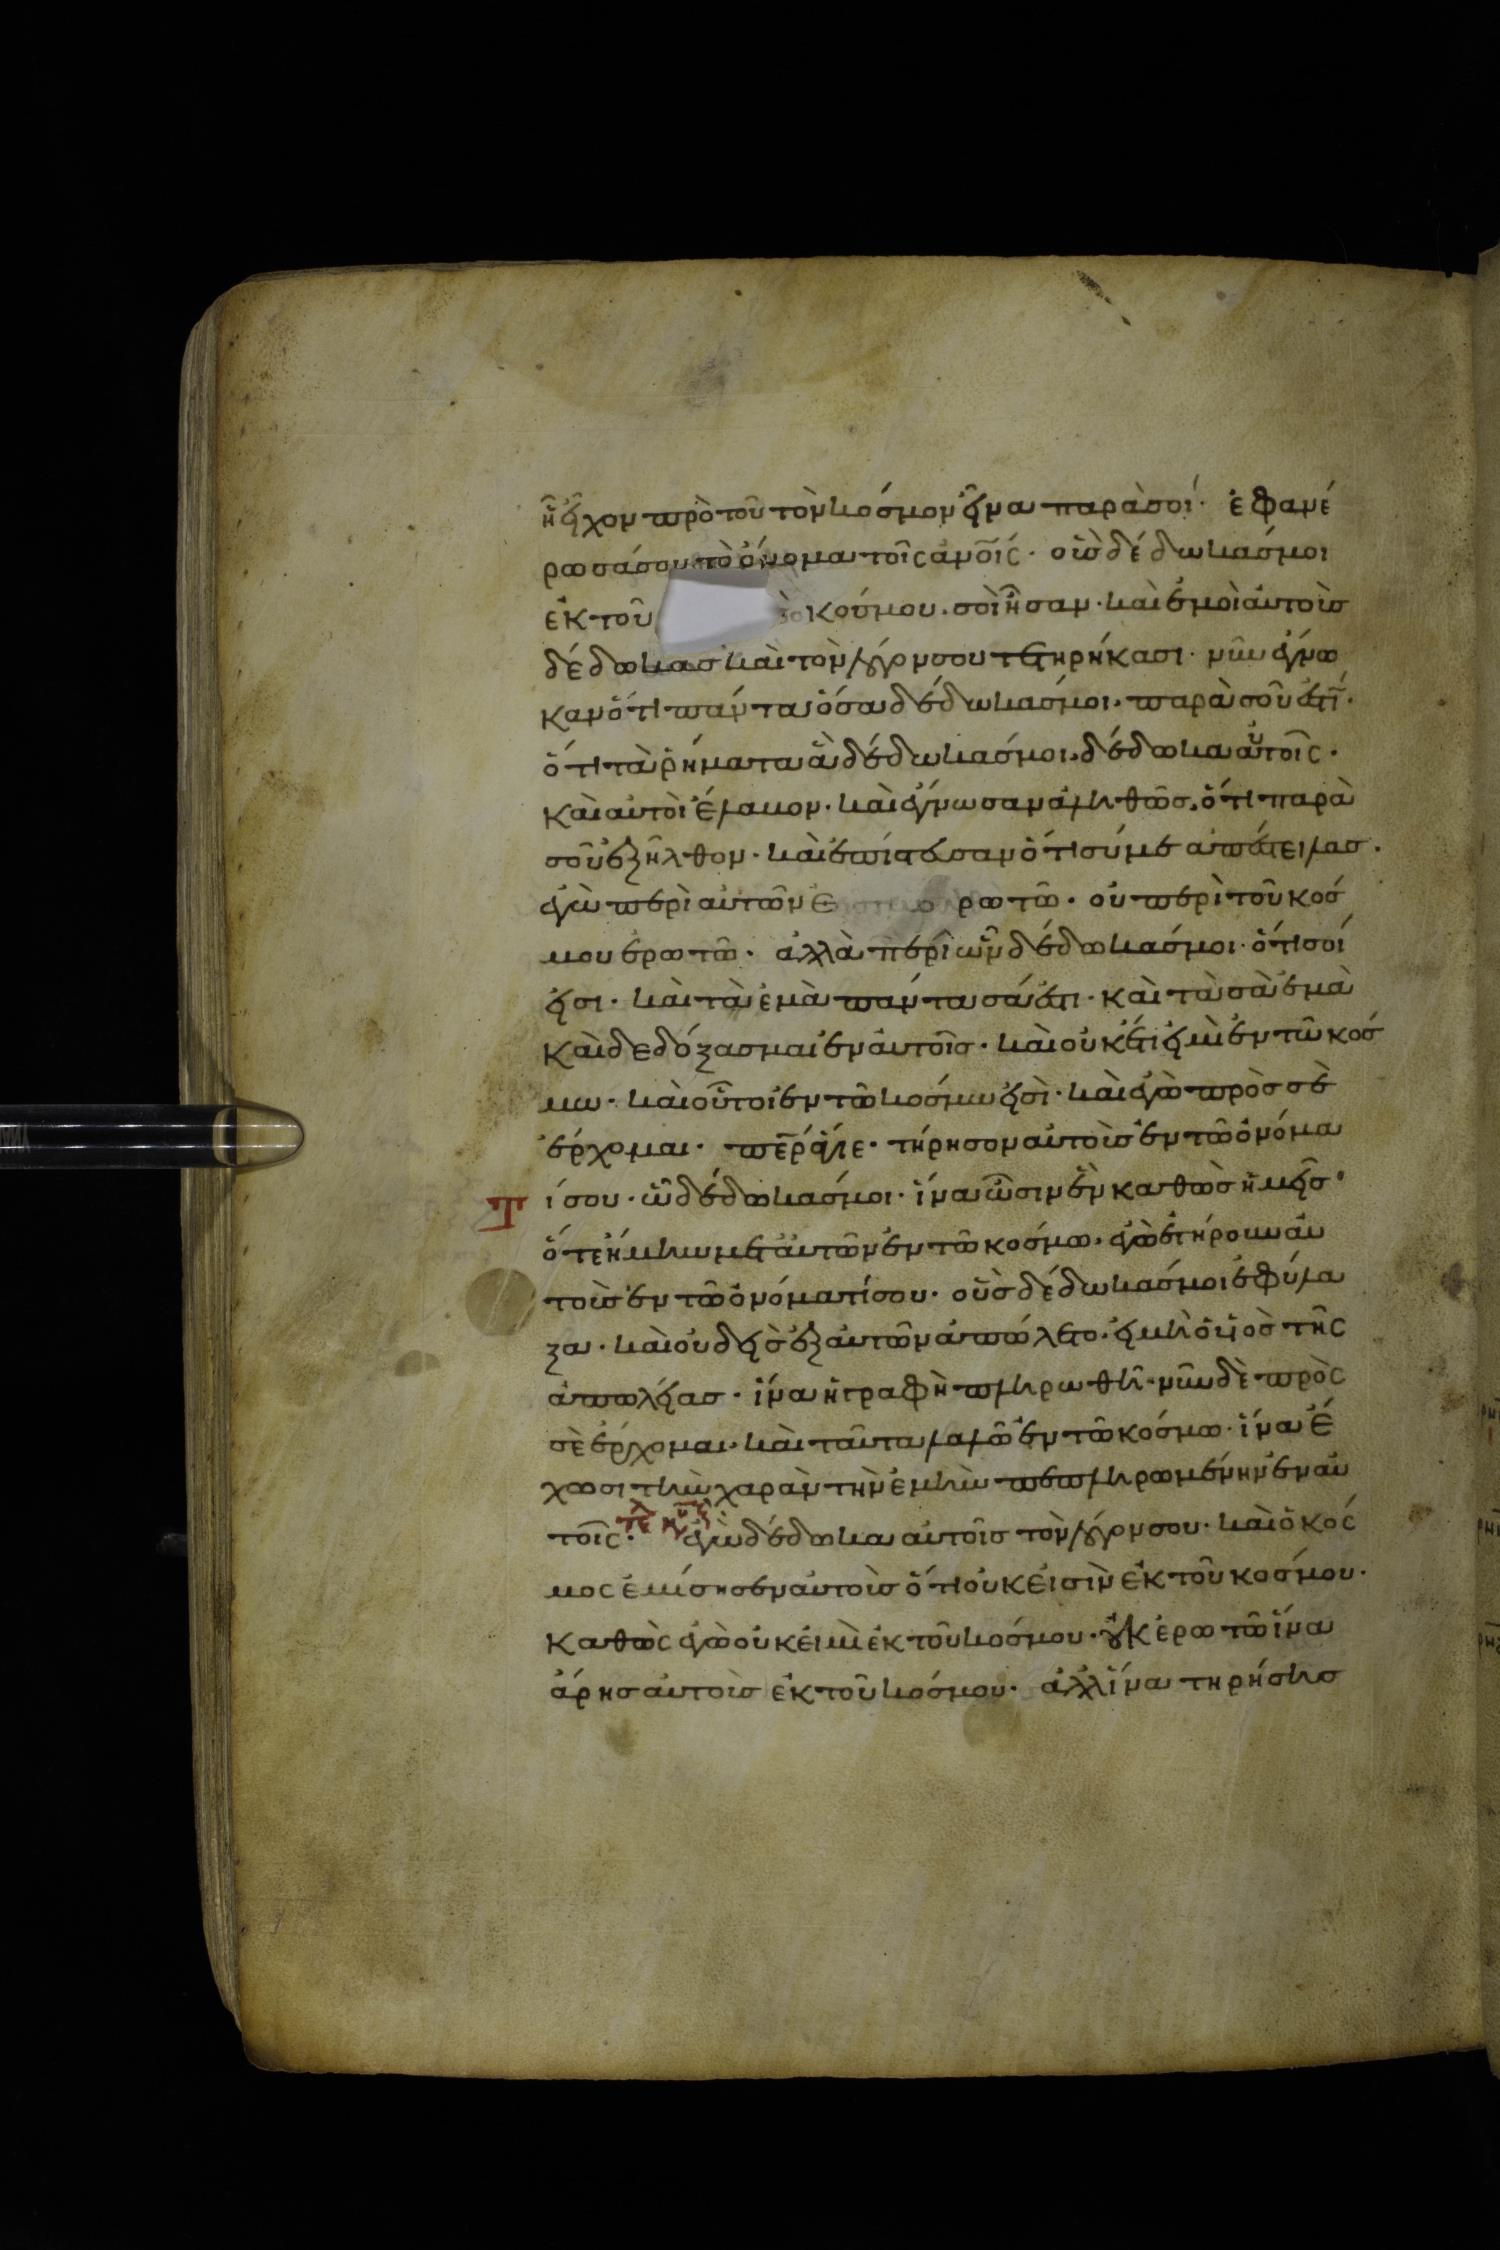 ἣ εἶχον πρὸ τοῦ τὸν κόσμον εἶναι παρὰ σοί· ἐφανέ
ρωσά σου τὸ ὄνομα τοῖς ἀνοῖς· οὓς δέδωκάς μοι
ἐκ τοῦ κόσμου. σοὶ ἦσαν· καὶ ἐμοὶ αὐτοὺς
δέδωκας καὶ τὸν λόγον σου τετηρήκασι· νῦν ἔγνω
καν ὅτι πάντα ὅσα δέδωκάς μοι. παρὰ σοῦ ἐστί·
ὅτι τὰ ῥήματα ἃ δέδωκάς μοι, δέδωκα αὐτοῖς·
καὶ αὐτοὶ ἔλαβον· καὶ ἔγνωσαν ἀληθῶς, ὅτι παρὰ
σοῦ ἐξῆλθον· καὶ ἐπίστευσαν ὅτι σύ με ἀπέστειλας.
ἐγὼ περὶ αὐτῶν ἐ ρωτῶ· οὐ περὶ τοῦ κόσ
μου ἐρωτῶ· ἀλλὰ περὶ ὧν δέδωκάς μοι· ὅτι σοί
εἰσι· καὶ τὰ ἐμὰ πάντα σά ἐστι· καὶ τὰ σὰ ἐμὰ
καὶ δεδόξασμαι ἐν αὐτοῖς· καὶ οὐκέτι εἰμὶ ἐν τῷ κόσ
μω· καὶ οὗτοι ἐν τῶ κόσμω εἰσὶ· καὶ ἐγὼ πρὸς σὲ
ἔρχομαι· περ ἅγιε· τήρησον αὐτοὺς ἐν τῶ ὀνόμα
τί σου· ᾧ δέδωκάς μοι· ἵνα ὦσιν ἓν καθὼς ἡμεῖς·
ὅτε ἤμην μετ αὐτῶν ἐν τῶ κόσμω· ἐγὼ ἐτήρουν αὐ
τοὺς ἐν τῶ ὀνόματί σου· οὓς δέδωκάς μοι ἐφύλα
ξα· καὶ οὐδεὶς ἐξ αὐτῶν ἀπώλετο· εἰ μὴ ὁ υἱὸς τῆς
ἀπωλείας· ἵνα ἡ γραφὴ πληρωθῆ· νῦν δὲ πρὸς
σὲ ἔρχομαι· καὶ ταῦτα λαλῶ ἐν τῶ κόσμω· ἵνα ἔ
χωσι τὴν χαρὰν τὴν ἐμὴν πεπληρωμένην ἐν αὐ
τοῖς· ἐγὼ δέδωκα αὐτοῖς τὸν λόγον σου· καὶ ὁ κόσ
μος ἐμίσησεν αὐτοὺς ὅτι οὐκ εἰσὶν ἐκ τοῦ κόσμου·
καθὼς ἐγὼ οὐκ εἰμὶ ἐκ τοῦ κόσμου· οὐκ ἐρωτῶ ἵνα
ἄρης αὐτοὺς ἐκ τοῦ κόσμου· ἀλλ ἵνα τηρήσης